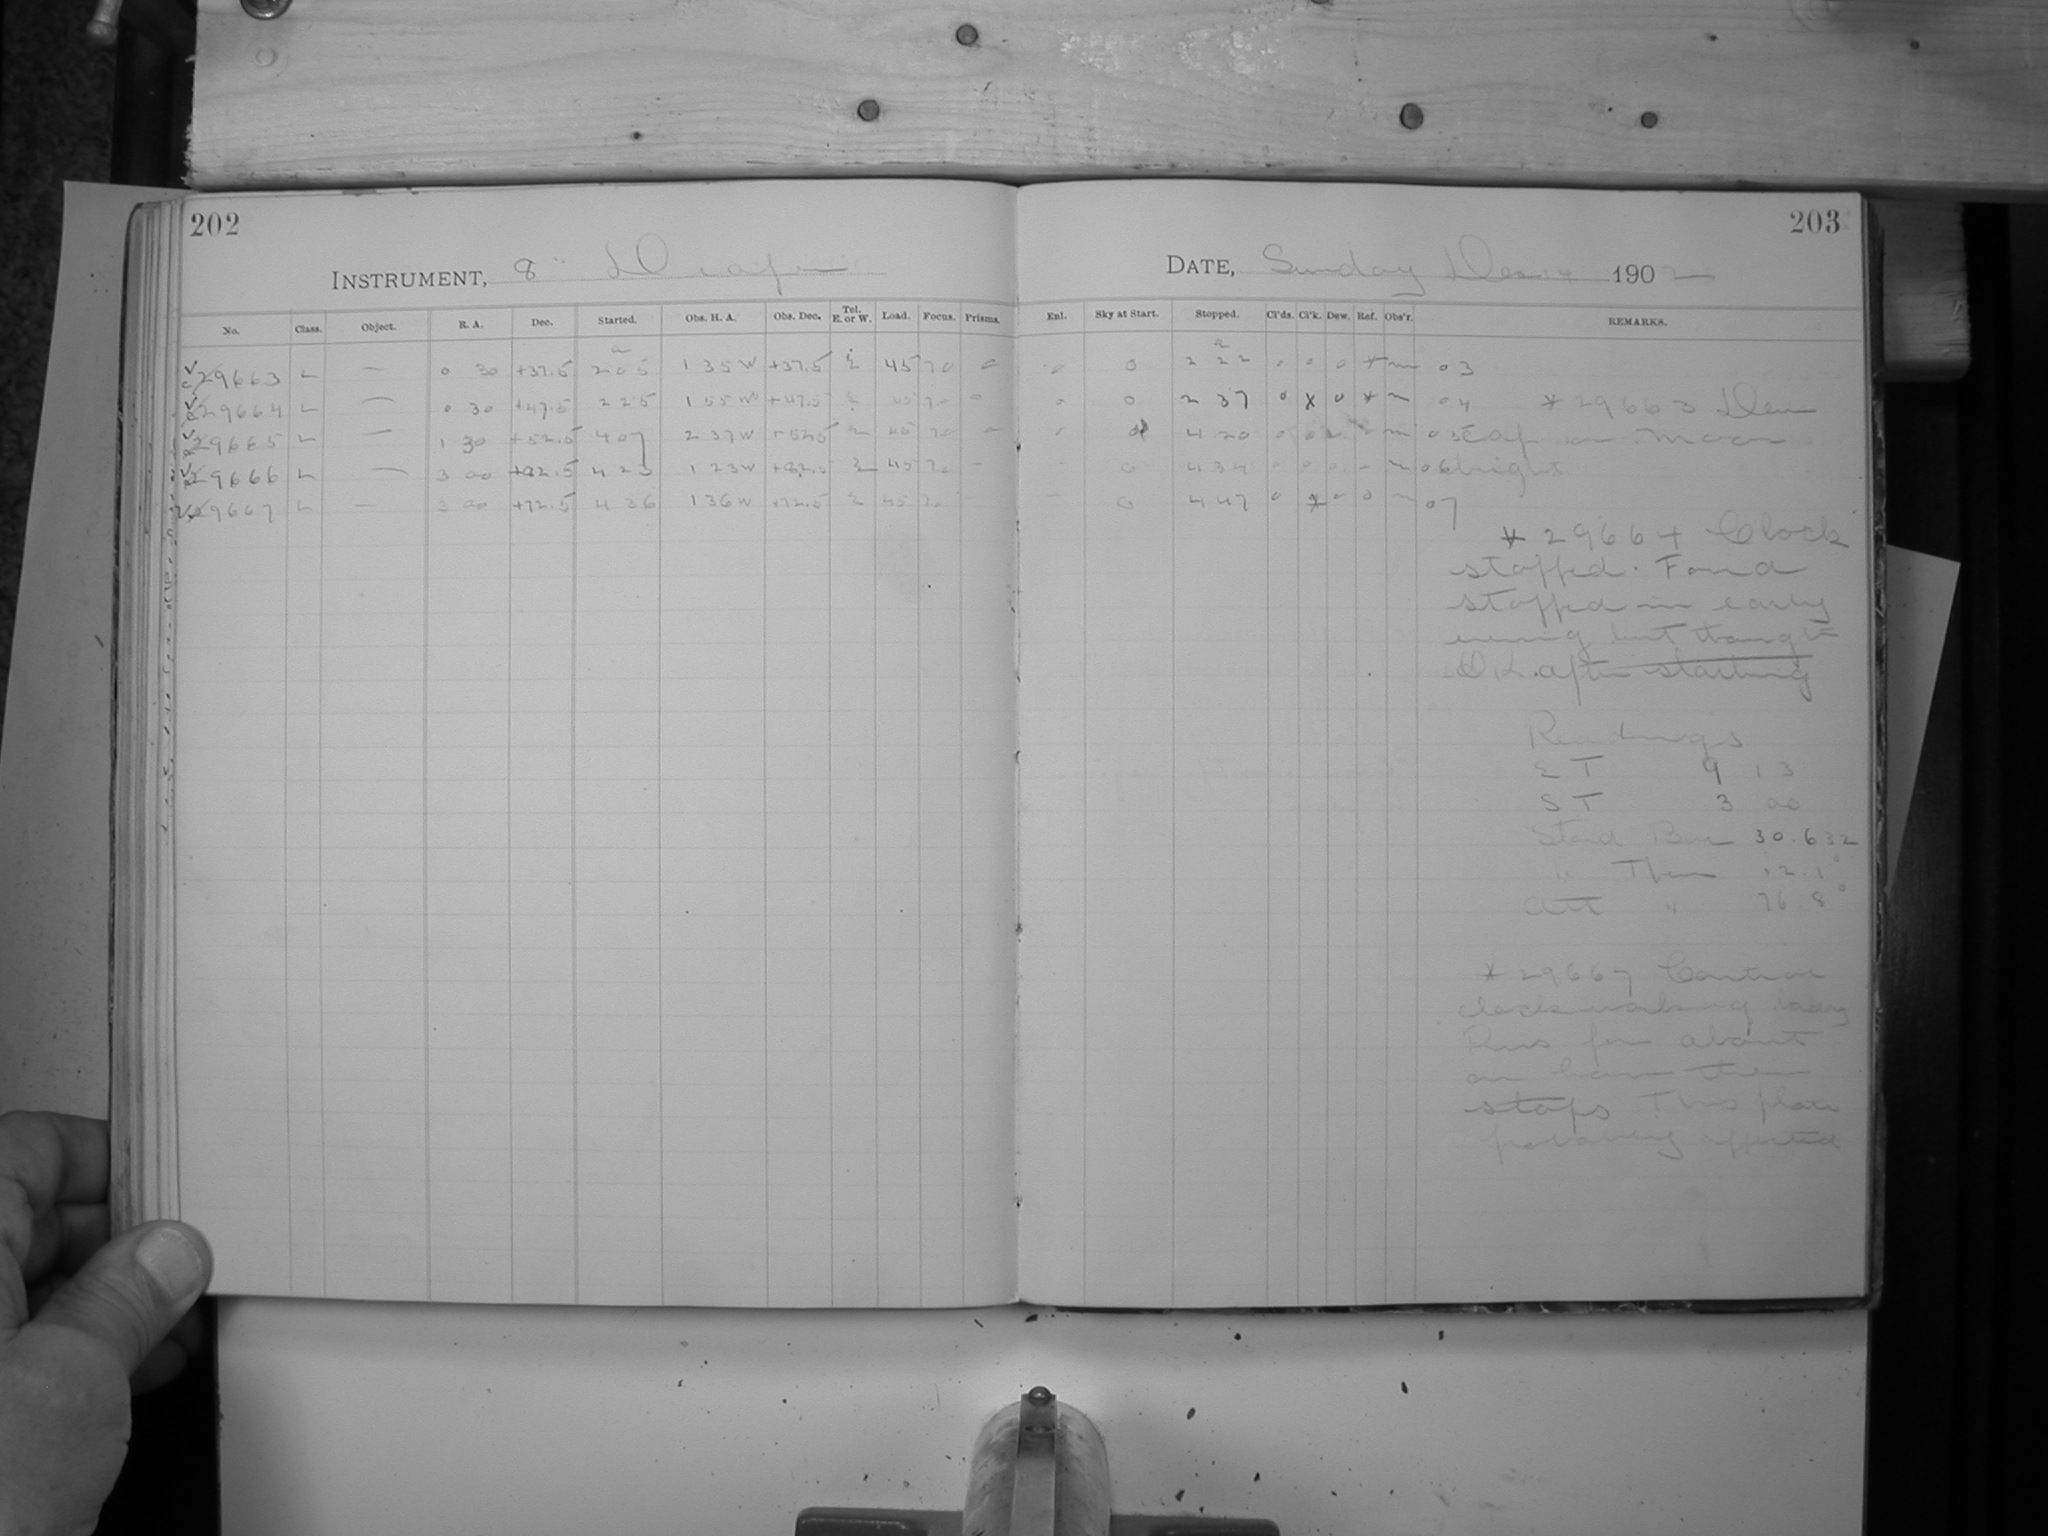 202
203
INSTRUMENT, 8" Draper
DATE, Sunday Dec 14 1902
No. Class. Object. R. A. Dec. Started. Obs. H. A. Obs. Dec. Tel. E. or W. Load. Focus. Prisms. Enl. Sky at Start. Stopped. Cl'ds. Cl'k. Dew. Ref. Obs'r. REMARKS.
29663 L — 0 30 +37.5 2 05 1 35 W +37.5 E 45 70 0 0 2 22 0 0 0 * m 03
29664 L — 0 30 +47.5 2 25 1 55 W +47.5 E 45 70 0 0 2 37 0 x 0 * m 04 * 29663 Dew
29665 L — 1 30 +52.5 4 07 2 37 W +52.5 E 45 70 4 20 0 0 m 05 cap on. Moon
29666 L — 3 00 +82.5 4 23 1 23 W +82.5 E 45 70 - 0 4 34 0 0 0 - m 06 bright
29667 L — 3 00 +72.5 4 36 1 36 W +72.5 E 45 70 - 0 4 47 0 * 0 0 m 07
* 29664 Clock
stopped. Found
stopped in early
evening but thought
O.K. after starting
Readings
E T 9 13
S T 3 00
Stand Bar 30.632
" Ther 12.1°
Att " 76.8°
* 29667 Control
clock working badly
Runs for about
an hour then
stops This plate
probably affected